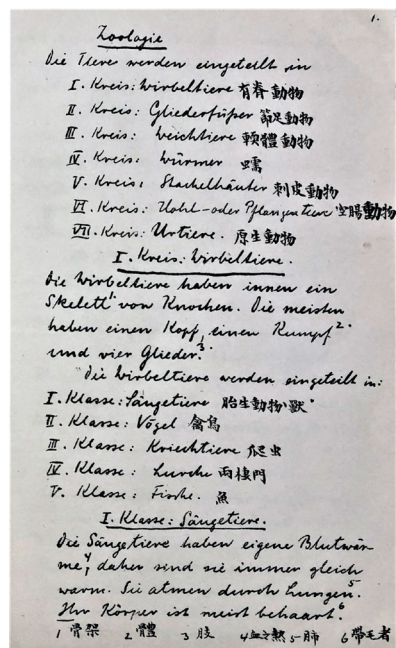 1.
Zoologie
Die Tiere werden eingeteilt in
I. Kreis: Wirbeltiere 有脊動物
II. Kreis: Gliederfüßer 節足動物
III. Kreis: Weichtiere 軟體動物
IV. Kreis: Würmer 蠕
V. Kreis: Stachelhäuter 刺皮動物
VI. Kreis: Hohl- oder Pflanzentiere 空腸動物
VII. Kreis: Urtiere. 原生動物
I. Kreis: Wirbeltiere.
Die Wirbeltiere haben innen ein
Skelett¹ von Knochen. Die meisten
haben einen Kopf, einen Rumpf²
und vier Glieder.³
Die Wirbeltiere werden eingeteilt in:
I. Klasse: Säugetiere 胎生動物獸
II. Klasse: Vögel 禽鳥
III. Klasse: Kriechtiere 爬虫
IV. Klasse: Lurche 両棲門
V. Klasse: Fische. 魚
I. Klasse: Säugetiere.
Die Säugetiere haben eigene Blutwär-
me⁴, daher sind sie immer gleich
warm. Sie atmen durch Lungen⁵.
Ihr Körper ist meist behaart.⁶
1 骨架 2 體 3 肢 4 血之熱 5 肺 6 帶毛者